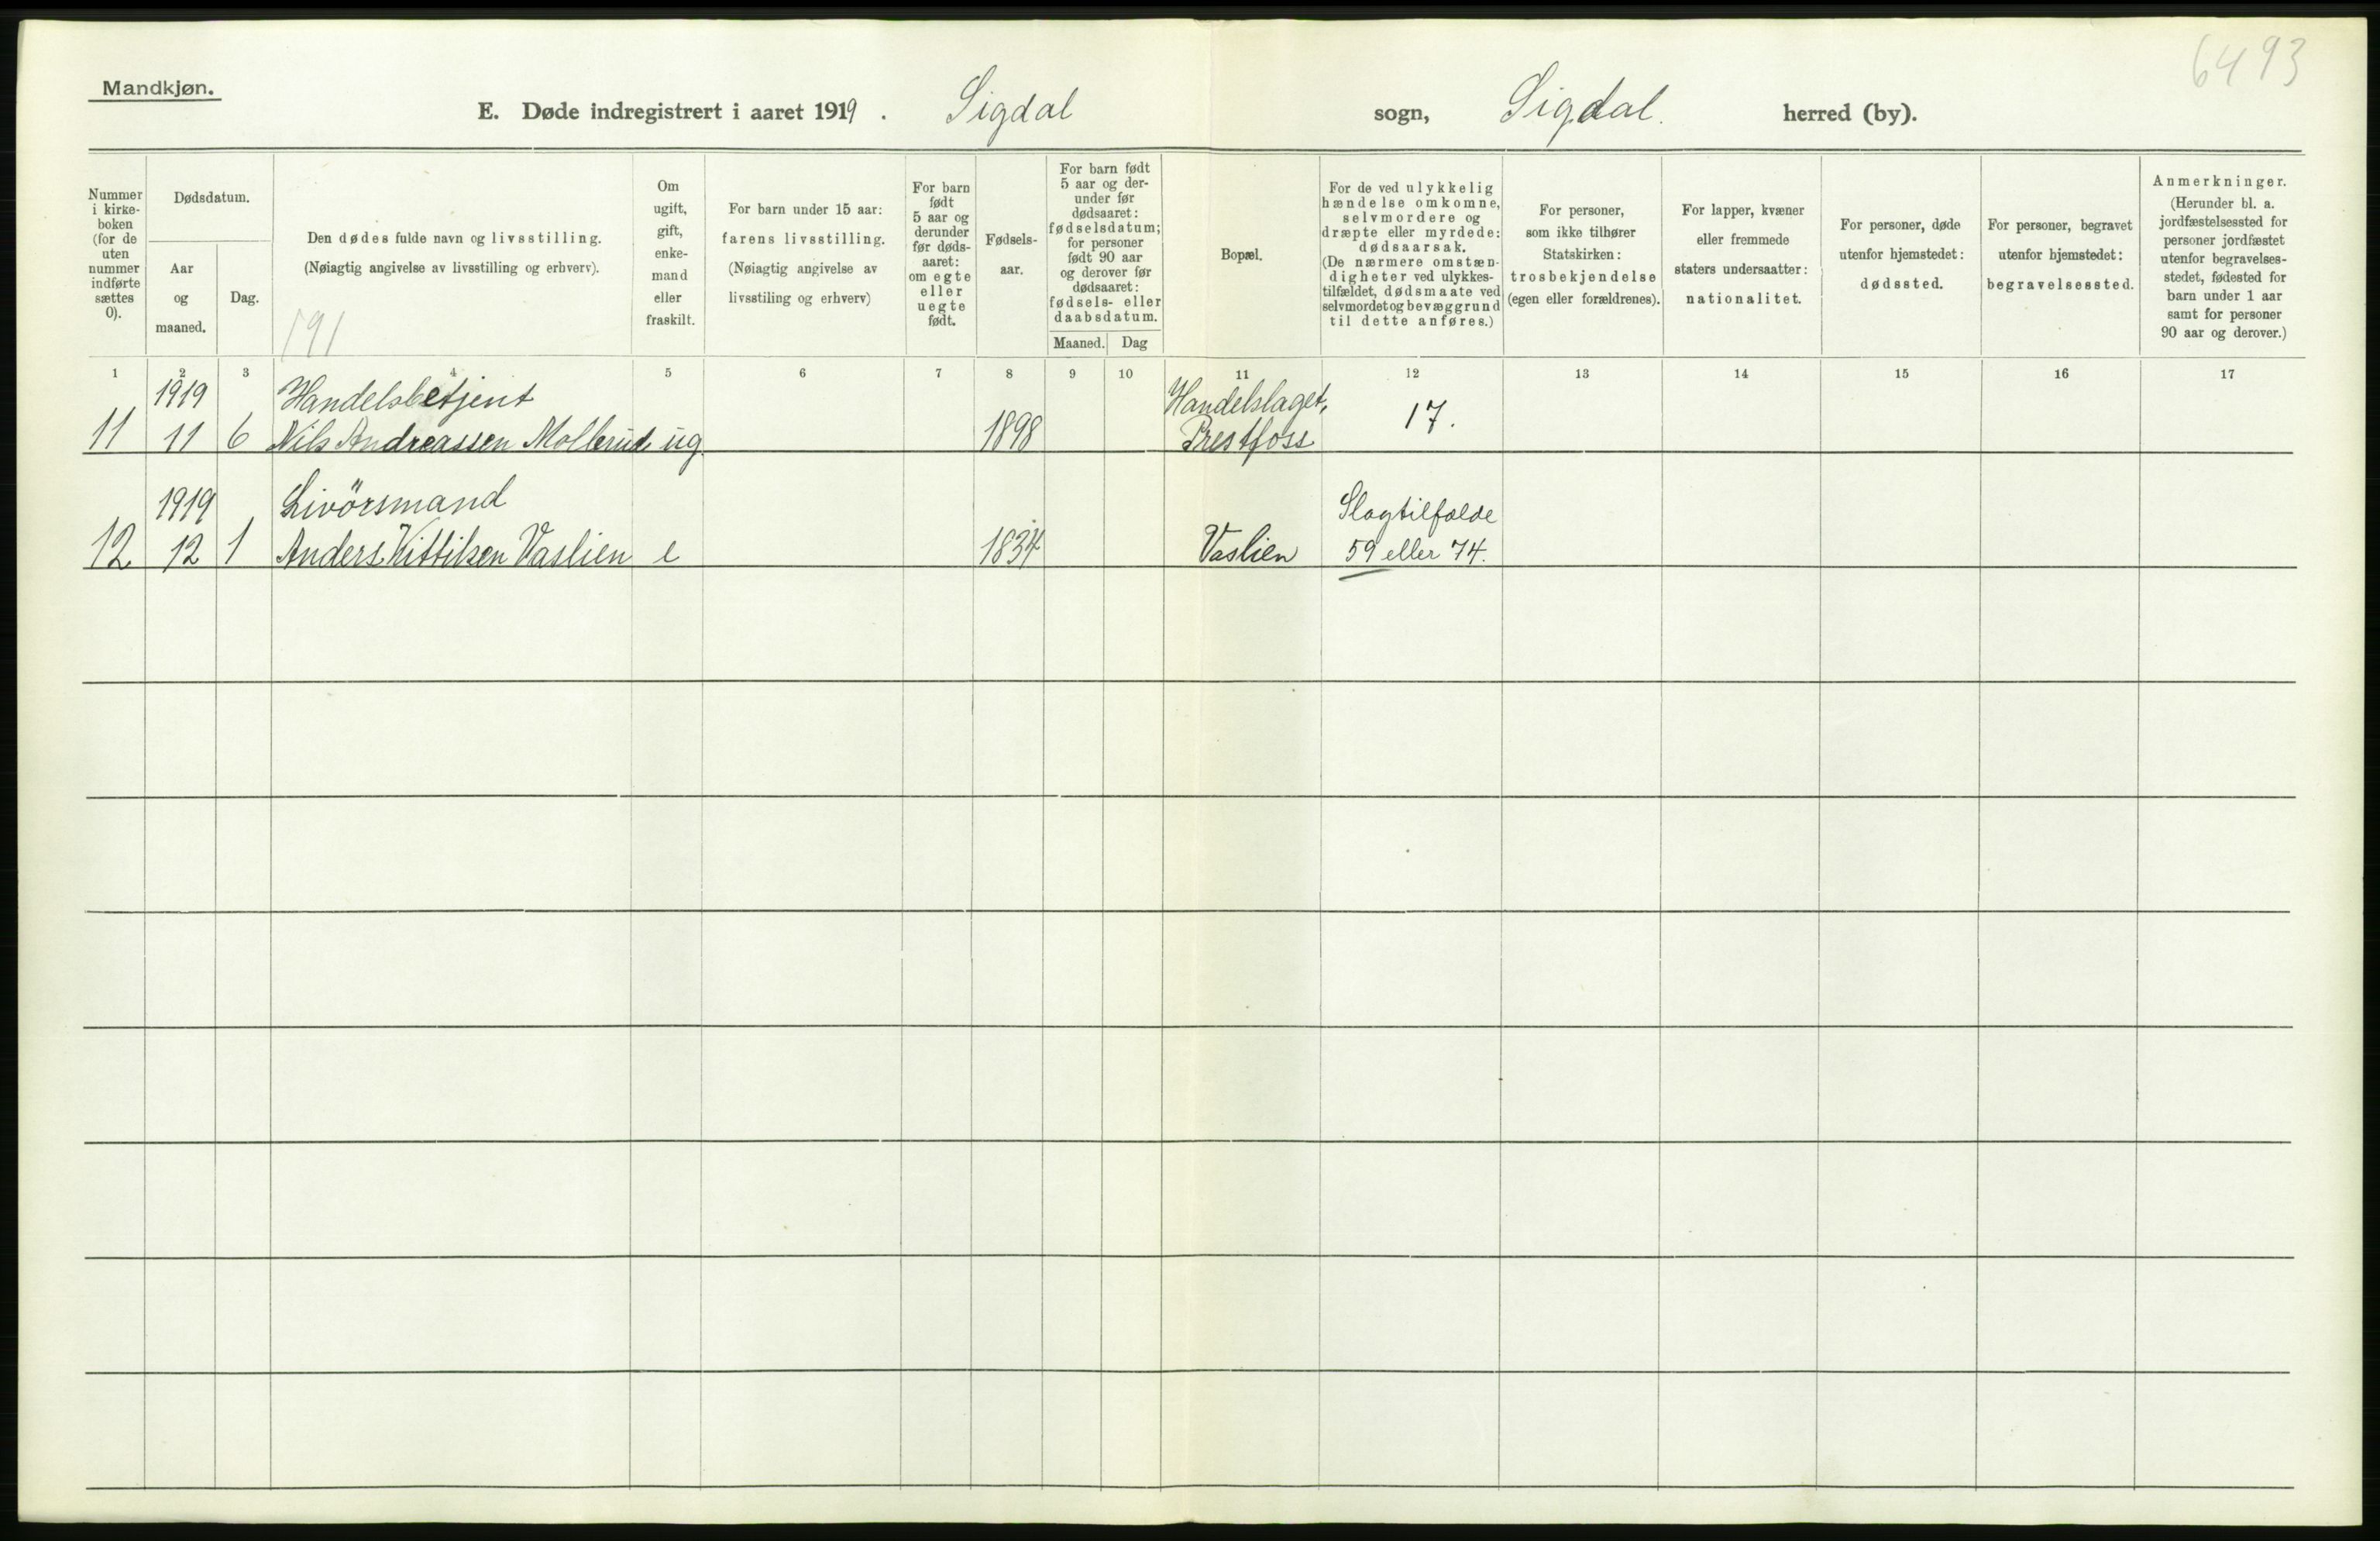 6493
Mandkjøn.
E. Døde indregistrert i aaret 1919. Sigdal sogn, Sigdal. herred (by).
Nummer
i kirke-
boken
(for de
uten
nummer
indførte
sættes
0).
Dødsdatum.
Aar
og
maaned.
Dag.
Den dødes fulde navn og livsstilling.
(Nøiagtig angivelse av livsstilling og erhverv).
191
Om
ugift,
gift,
enke-
mand
eller
fraskilt.
For barn under 15 aar:
farens livsstilling.
(Nøiagtig angivelse av
livsstiling og erhverv)
For barn
født
5 aar og
derunder
før døds-
aaret:
om egte
eller
uegte
født.
Fødsels-
aar.
For barn født
5 aar og der-
under før
dødsaaret:
fødselsdatum;
for personer
født 90 aar
og derover før
dødsaaret:
fødsels- eller
daabsdatum.
Maaned. Dag
Bopæl.
For de ved ulykkelig
hændelse omkomne,
selvmordere og
dræpte eller myrdede:
dødsaarsak.
(De nærmere omstæn-
digheter ved ulykkes-
tilfældet, dødsmaate ved
selvmordet og bevæggrund
til dette anføres.)
For personer,
som ikke tilhører
Statskirken:
trosbekjendelse
(egen eller forældrenes).
For lapper, kvæner
eller fremmede
staters undersaatter:
nationalitet.
For personer, døde
utenfor hjemstedet:
dødssted.
For personer, begravet
utenfor hjemstedet:
begravelsessted.
Anmerkninger.
(Herunder bl. a.
jordfæstelsessted for
personer jordfæstet
utenfor begravelses-
stedet, fødested for
barn under 1 aar
samt for personer
90 aar og derover.)
1 2 3 4 5 6 7 8 9 10 11 12 13 14 15 16 17
1919 Handelsbetjent Handelslaget,
11 11 6 Nils Andreassen Mollerud ug. 1898 Prestfoss 17.
1919 Livörsmand Slagtilfælde
12 12 1 Anders Kittilsen Vaslien e 1834 Vaslien 59 eller 74.